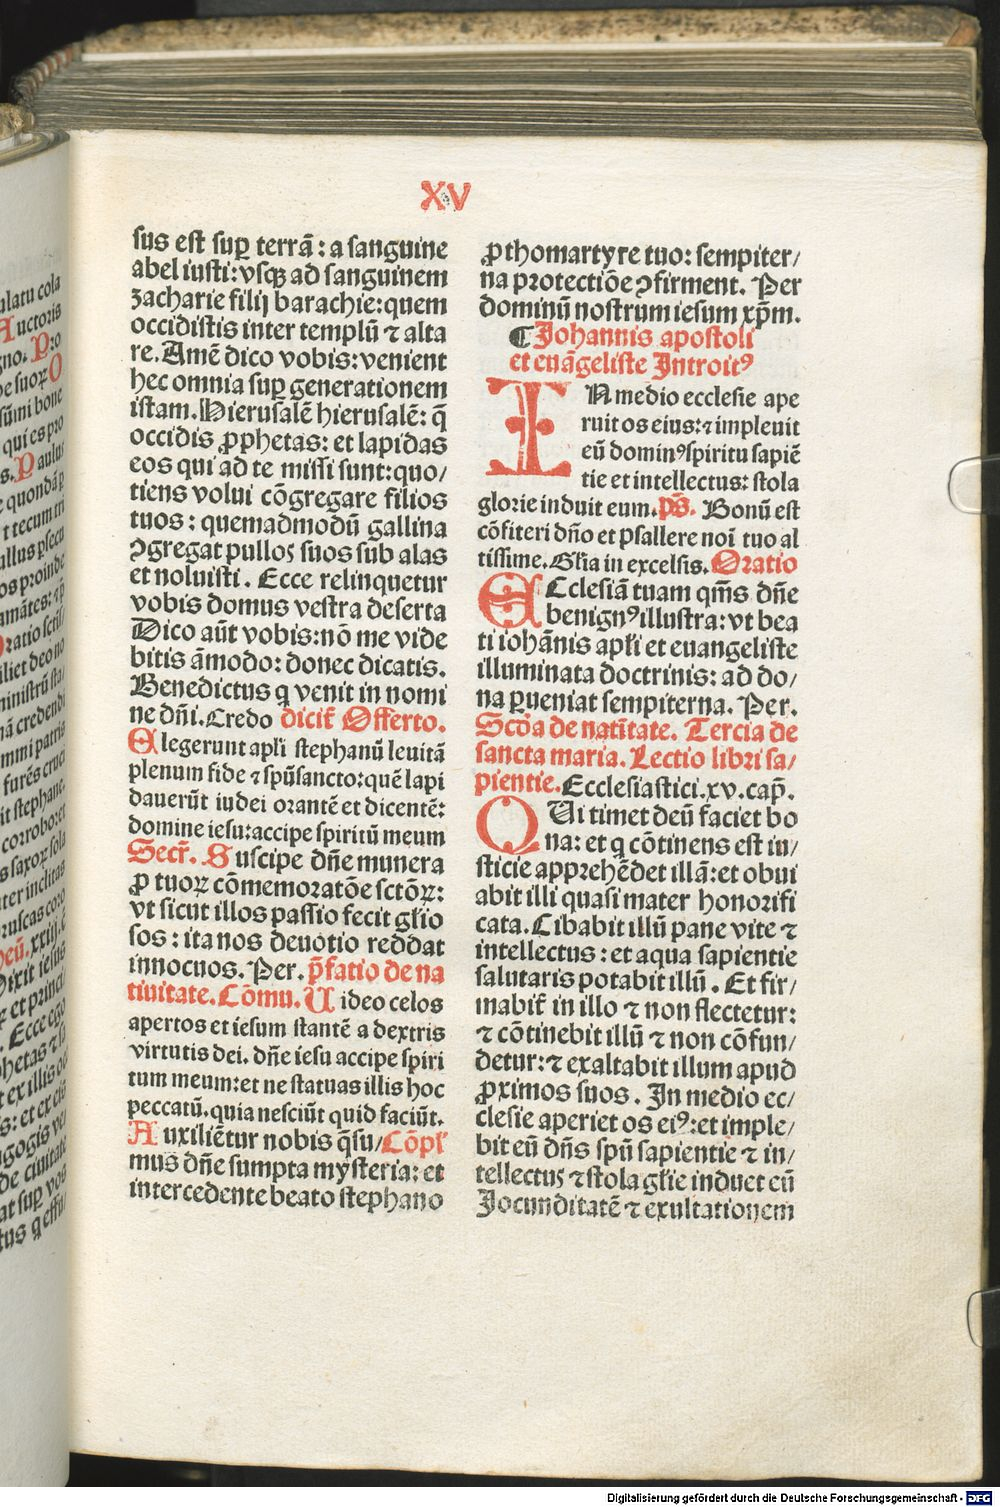 XV
sus est sup terrã : a sanguine
abel iusti: vsqꝫ ad sanguinem
zacharie filij barachie: quem
occidistis inter templũ ⁊ alta
re. Amẽ dico vobis: venient
hec omnia sup generationem
istam. Hierusalẽ hierusalẽ: q̃
occidis ꝓphetas: et lapidas
eos qui ad te missi sunt: quo/
tiens volui cõgregare filios
tuos : quemadmodũ gallina
ꝯgregat pullos suos sub alas
et noluisti. Ecce relinquetur
vobis domus vestra deserta
Dico aũt vobis: nõ me vide
bitis ãmodo: donec dicatis.
Benedictus q venit in nomi
ne dñi. Credo dicit̃ Offerto.
Elegerunt apli stephanũ leuitã
plenum fide ⁊ spũsancto: quẽ lapi
dauerũt iudei orantẽ et dicentẽ:
domine iesu: accipe spiritũ meum
Secr̃. Suscipe dñe munera
ꝓ tuoꝝ cõmemoratõe sctõꝝ:
vt sicut illos passio fecit glio
sos : ita nos deuotio reddat
innocuos. Per. p̃fatio de na
tiuitate. Cõmu. Uideo celos
apertos et iesum stantẽ a dextris
virtutis dei. dñe iesu accipe spiri
tum meum: et ne statuas illis hoc
peccatũ. quia nesciũt quid faciũt.
Auxiliẽtur nobis q̃su/ Cõpl
mus dñe sumpta mysteria: et
intercedente beato stephano
ꝓthomartyre tuo: sempiter/
na protectiõe ꝯfirment. Per
dominũ nostrum iesum xp̃m.
¶ Johannis apostoli
et euãgeliste Introitꝰ
IN medio ecclesie ape
ruit os eius: ⁊ impleuit
eũ dominꝰ spiritu sapiẽ
tie et intellectus: stola
glorie induit eum. p̃s. Bonũ est
cõfiteri dño et psallere noĩ tuo al
tissime. Glia in excelsis. Oratio
ECclesiã tuam qm̃s dñe
benignꝰ illustra: vt bea
ti iohãnis apli et euangeliste
illuminata doctrinis: ad do/
na ꝑueniat sempiterna. Per.
Scõa de natĩtate. Tercia de
sancta maria. Lectio libri sa/
pientie. Ecclesiastici. xv. cap̃.
QUi timet deũ faciet bo
na: et q cõtinens est iu/
sticie apprehẽdet illã: et obui
abit illi quasi mater honorifi
cata. Cibabit illũ pane vite ⁊
intellectus : et aqua sapientie
salutaris potabit illũ . Et fir/
mabit̃ in illo ⁊ non flectetur:
⁊ cõtinebit illũ ⁊ non cõfun/
detur: ⁊ exaltabit illum apud
ꝓximos suos . In medio ec/
clesie aperiet os eiꝰ: et imple/
bit eũ dñs spũ sapientie ⁊ in/
tellectus ⁊ stola glie induet eũ
Jocunditatẽ ⁊ exultationem
Digitalisierung gefördert durch die Deutsche Forschungsgemeinschaft - DFG